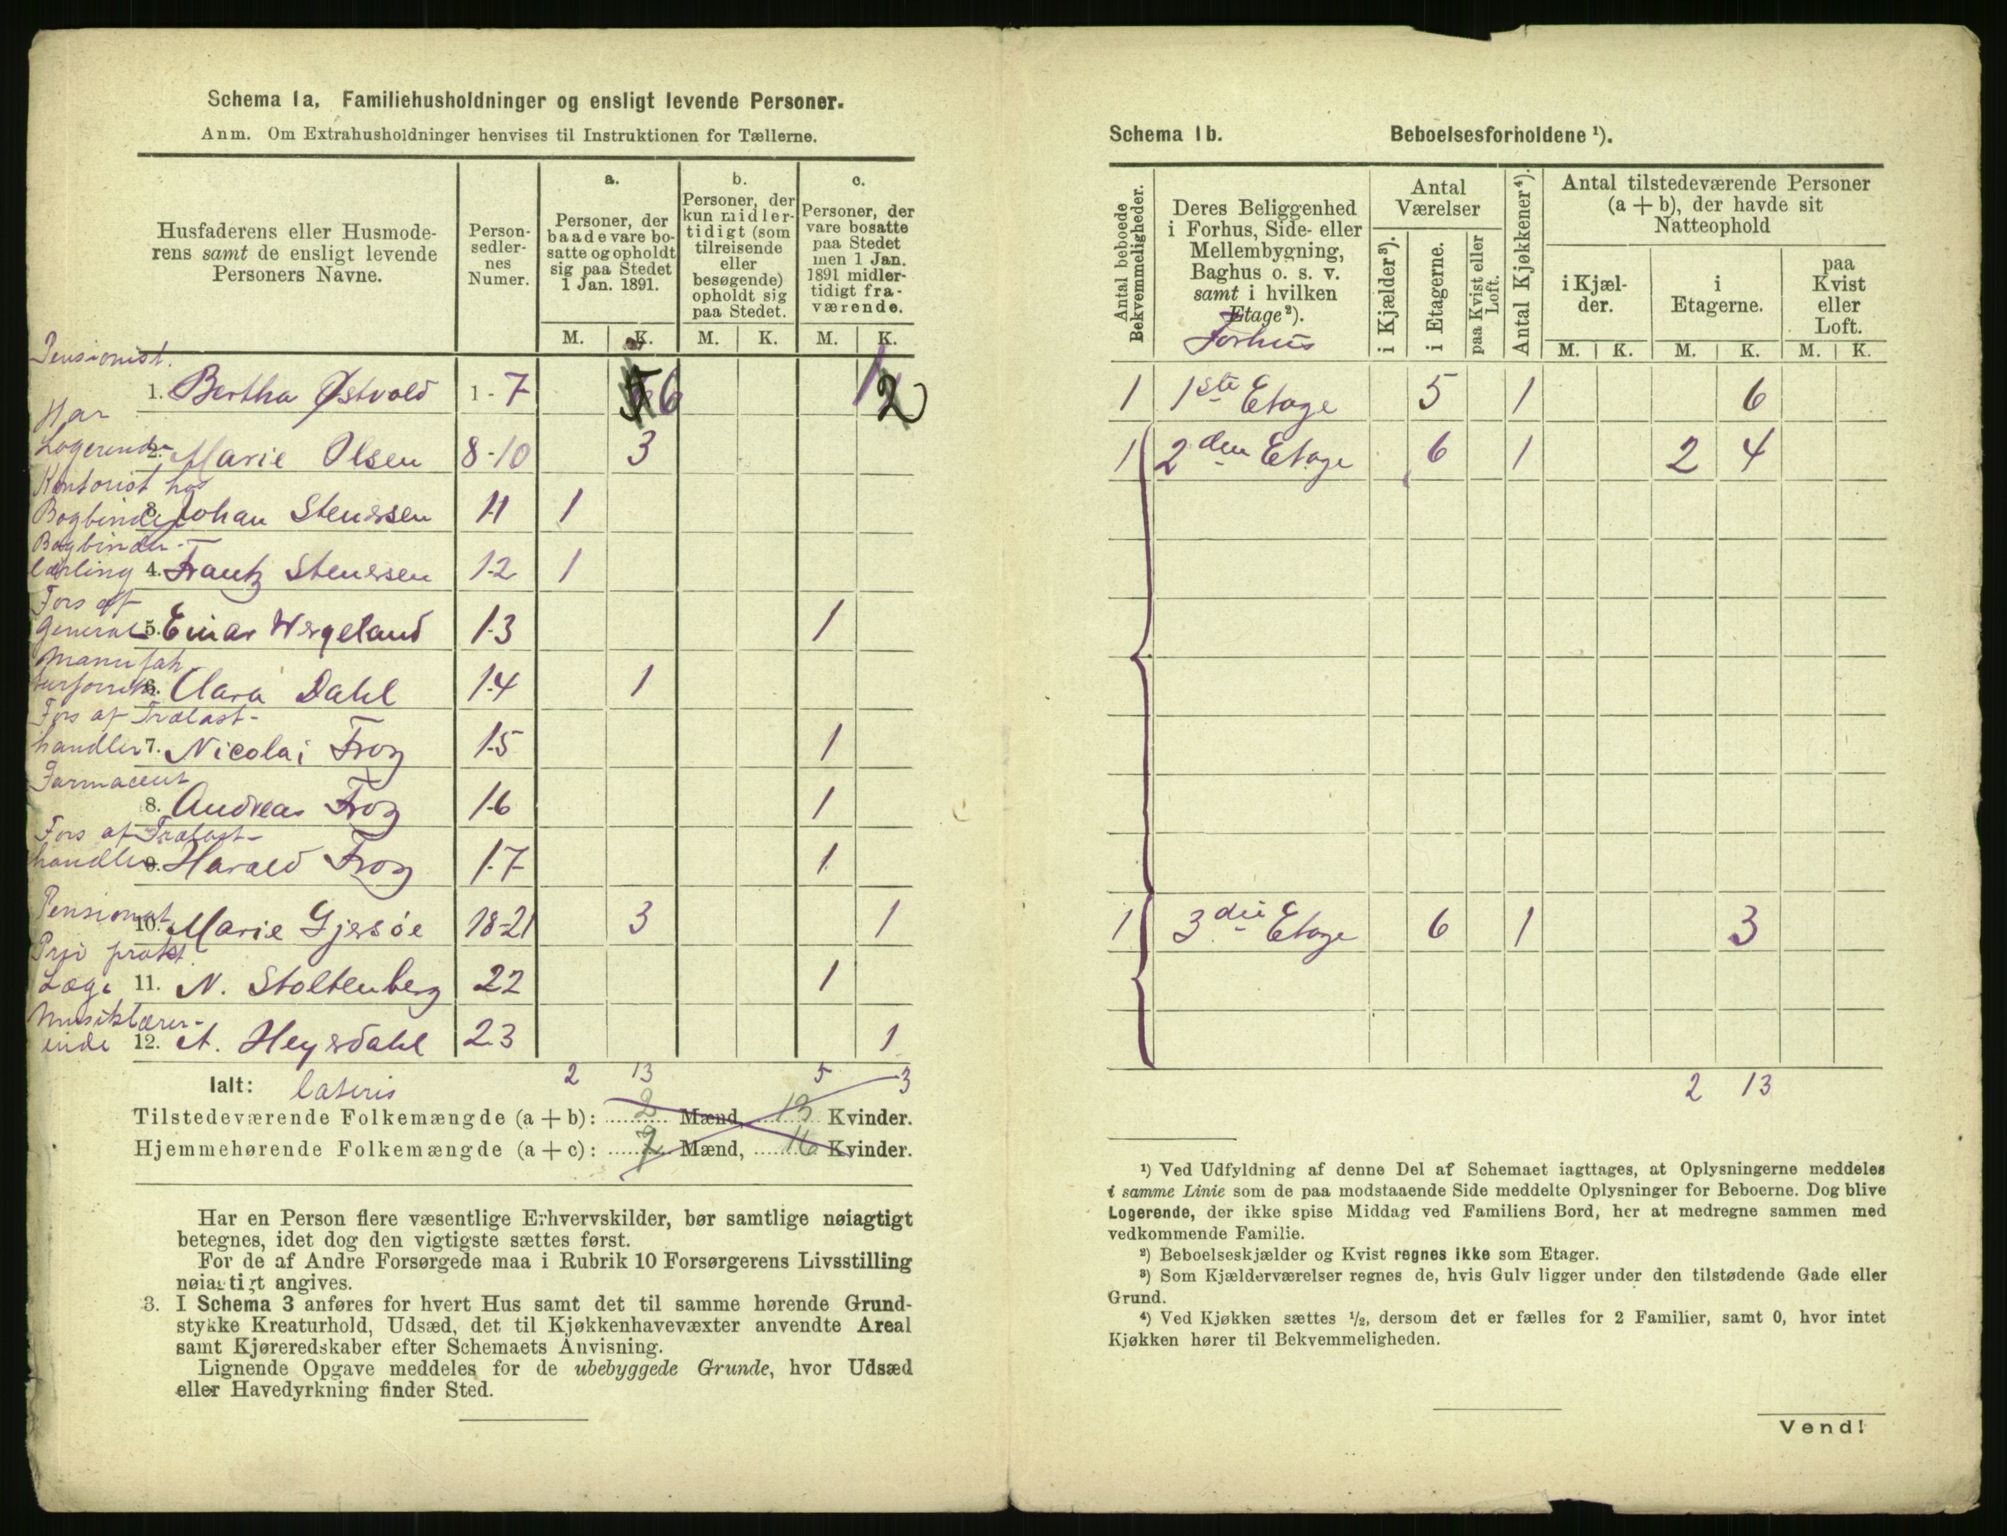 Schema 1a, Familiehusholdninger og ensligt levende Personer.
Anm. Om Extrahusholdninger henvises til Instruktionen for Tællerne.
Husfaderens eller Husmode-
rens samt de ensligt levende
Personers Navne.
Person-
sedler-
nes
Numer.
a.
Personer, der
baade vare bo-
satte og opholdt
sig paa Stedet
1 Jan. 1891.
b.
Personer, der
kun midler-
tidigt (som
tilreisende
eller
besøgende)
opholdt sig
paa Stedet.
c.
Personer, der
vare bosatte
paa Stedet
men 1 Jan.
1891 midler-
tidigt fra-
værende.
M. K. M. K. M. K.
Pensionist.
1. Bertha Østvold 1-7 6 2
Har
Logerende
2. Marie Olsen 8-10 3
Kontorist hos
Bogbinder 3. Johan Stenersen 11 1
Bogbinder-
lærling 4. Frantz Stenersen 12 1
Fors af
General 5. Einar Wergeland 13 1
Manufak
turforretn 6. Clara Dahl 14 1
Fors af Trælast-
handler 7. Nicolai Frog 15 1
Farmaceut
8. Andreas Frog 16 1
Fors af Trælast-
handler 9. Harald Frog 17 1
Pensionat
10. Marie Gjersøe 18-21 3 1
Priv prakt
Læge 11. N. Stoltenberg 22 1
Musiklærer-
inde 12. A. Heyerdahl 23 1
Ialt: lateris 2 13 5 3
Tilstedeværende Folkemængde (a + b): 2 Mænd, 13 Kvinder.
Hjemmehørende Folkemængde (a + c): 7 Mænd, 16 Kvinder.
Har en Person flere væsentlige Erhvervskilder, bør samtlige nøiagtigt
betegnes, idet dog den vigtigste sættes først.
For de af Andre Forsørgede maa i Rubrik 10 Forsørgerens Livsstilling
nøiagtigt angives.
3. I Schema 3 anføres for hvert Hus samt det til samme hørende Grund-
stykke Kreaturhold, Udsæd, det til Kjøkkenhavevæxter anvendte Areal
samt Kjøreredskaber efter Schemaets Anvisning.
Lignende Opgave meddeles for de ubebyggede Grunde, hvor Udsæd
eller Havedyrkning finder Sted.
Schema 1b. Beboelsesforholdene ¹).
Antal beboede
Bekvemmeligheder.
Deres Beliggenhed
i Forhus, Side- eller
Mellembygning,
Baghus o. s. v.
samt i hvilken
Etage ²).
Forhus
Antal
Værelser
i Kjælder ³).
i Etagerne.
paa Kvist eller
Loft.
Antal Kjøkkener ⁴).
Antal tilstedeværende Personer
(a + b), der havde sit
Natteophold
i Kjæl-
der.
i
Etagerne.
paa
Kvist
eller
Loft.
M. K. M. K. M. K.
1 1ste Etage 5 1 6
1 2den Etage 6 1 2 4
1 3die Etage 6 1 3
2 13
¹) Ved Udfyldning af denne Del af Schemaet iagttages, at Oplysningerne meddeles
i samme Linie som de paa modstaaende Side meddelte Oplysninger for Beboerne. Dog blive
Logerende, der ikke spise Middag ved Familiens Bord, her at medregne sammen med
vedkommende Familie.
²) Beboelseskjælder og Kvist regnes ikke som Etager.
³) Som Kjælderværelser regnes de, hvis Gulv ligger under den tilstødende Gade eller
Grund.
⁴) Ved Kjøkken sættes ½, dersom det er fælles for 2 Familier, samt 0, hvor intet
Kjøkken hører til Bekvemmeligheden.
Vend!